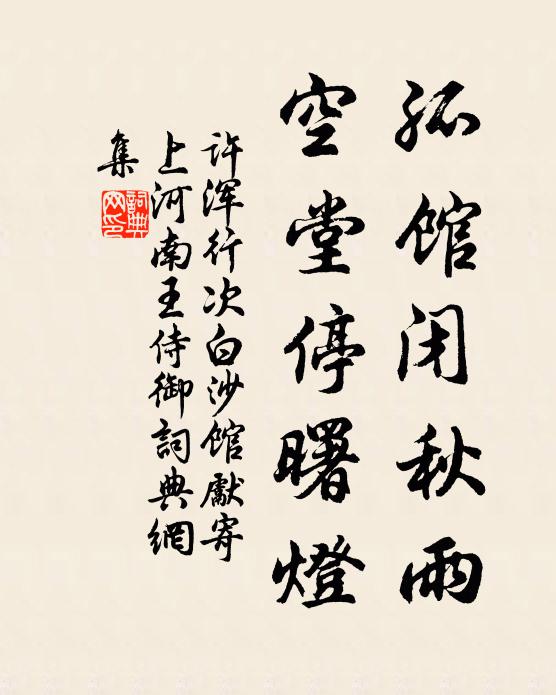 孤館闭秋雨
空堂停曙燈
许渾行次白沙館獻寄
上河南王侍御詞典網
集
詞典
网印